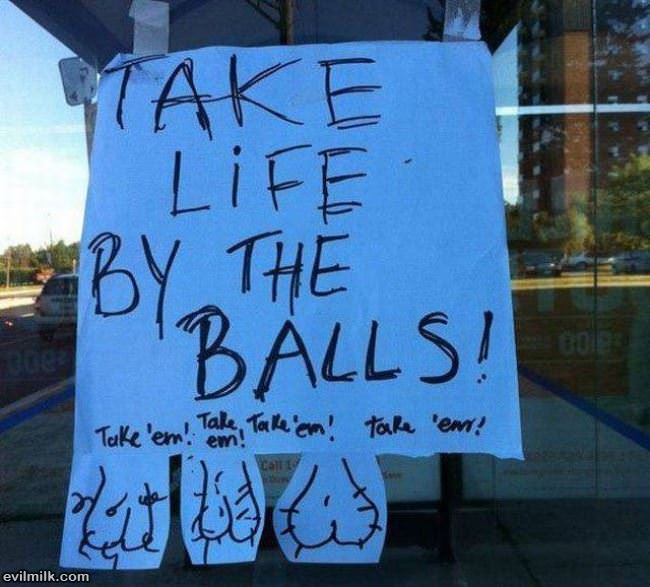 TAKE
LiFE
BY THE
BALLS!
Take 'em! Take em! Take 'em! take 'em!
Call 1-
evilmilk.com